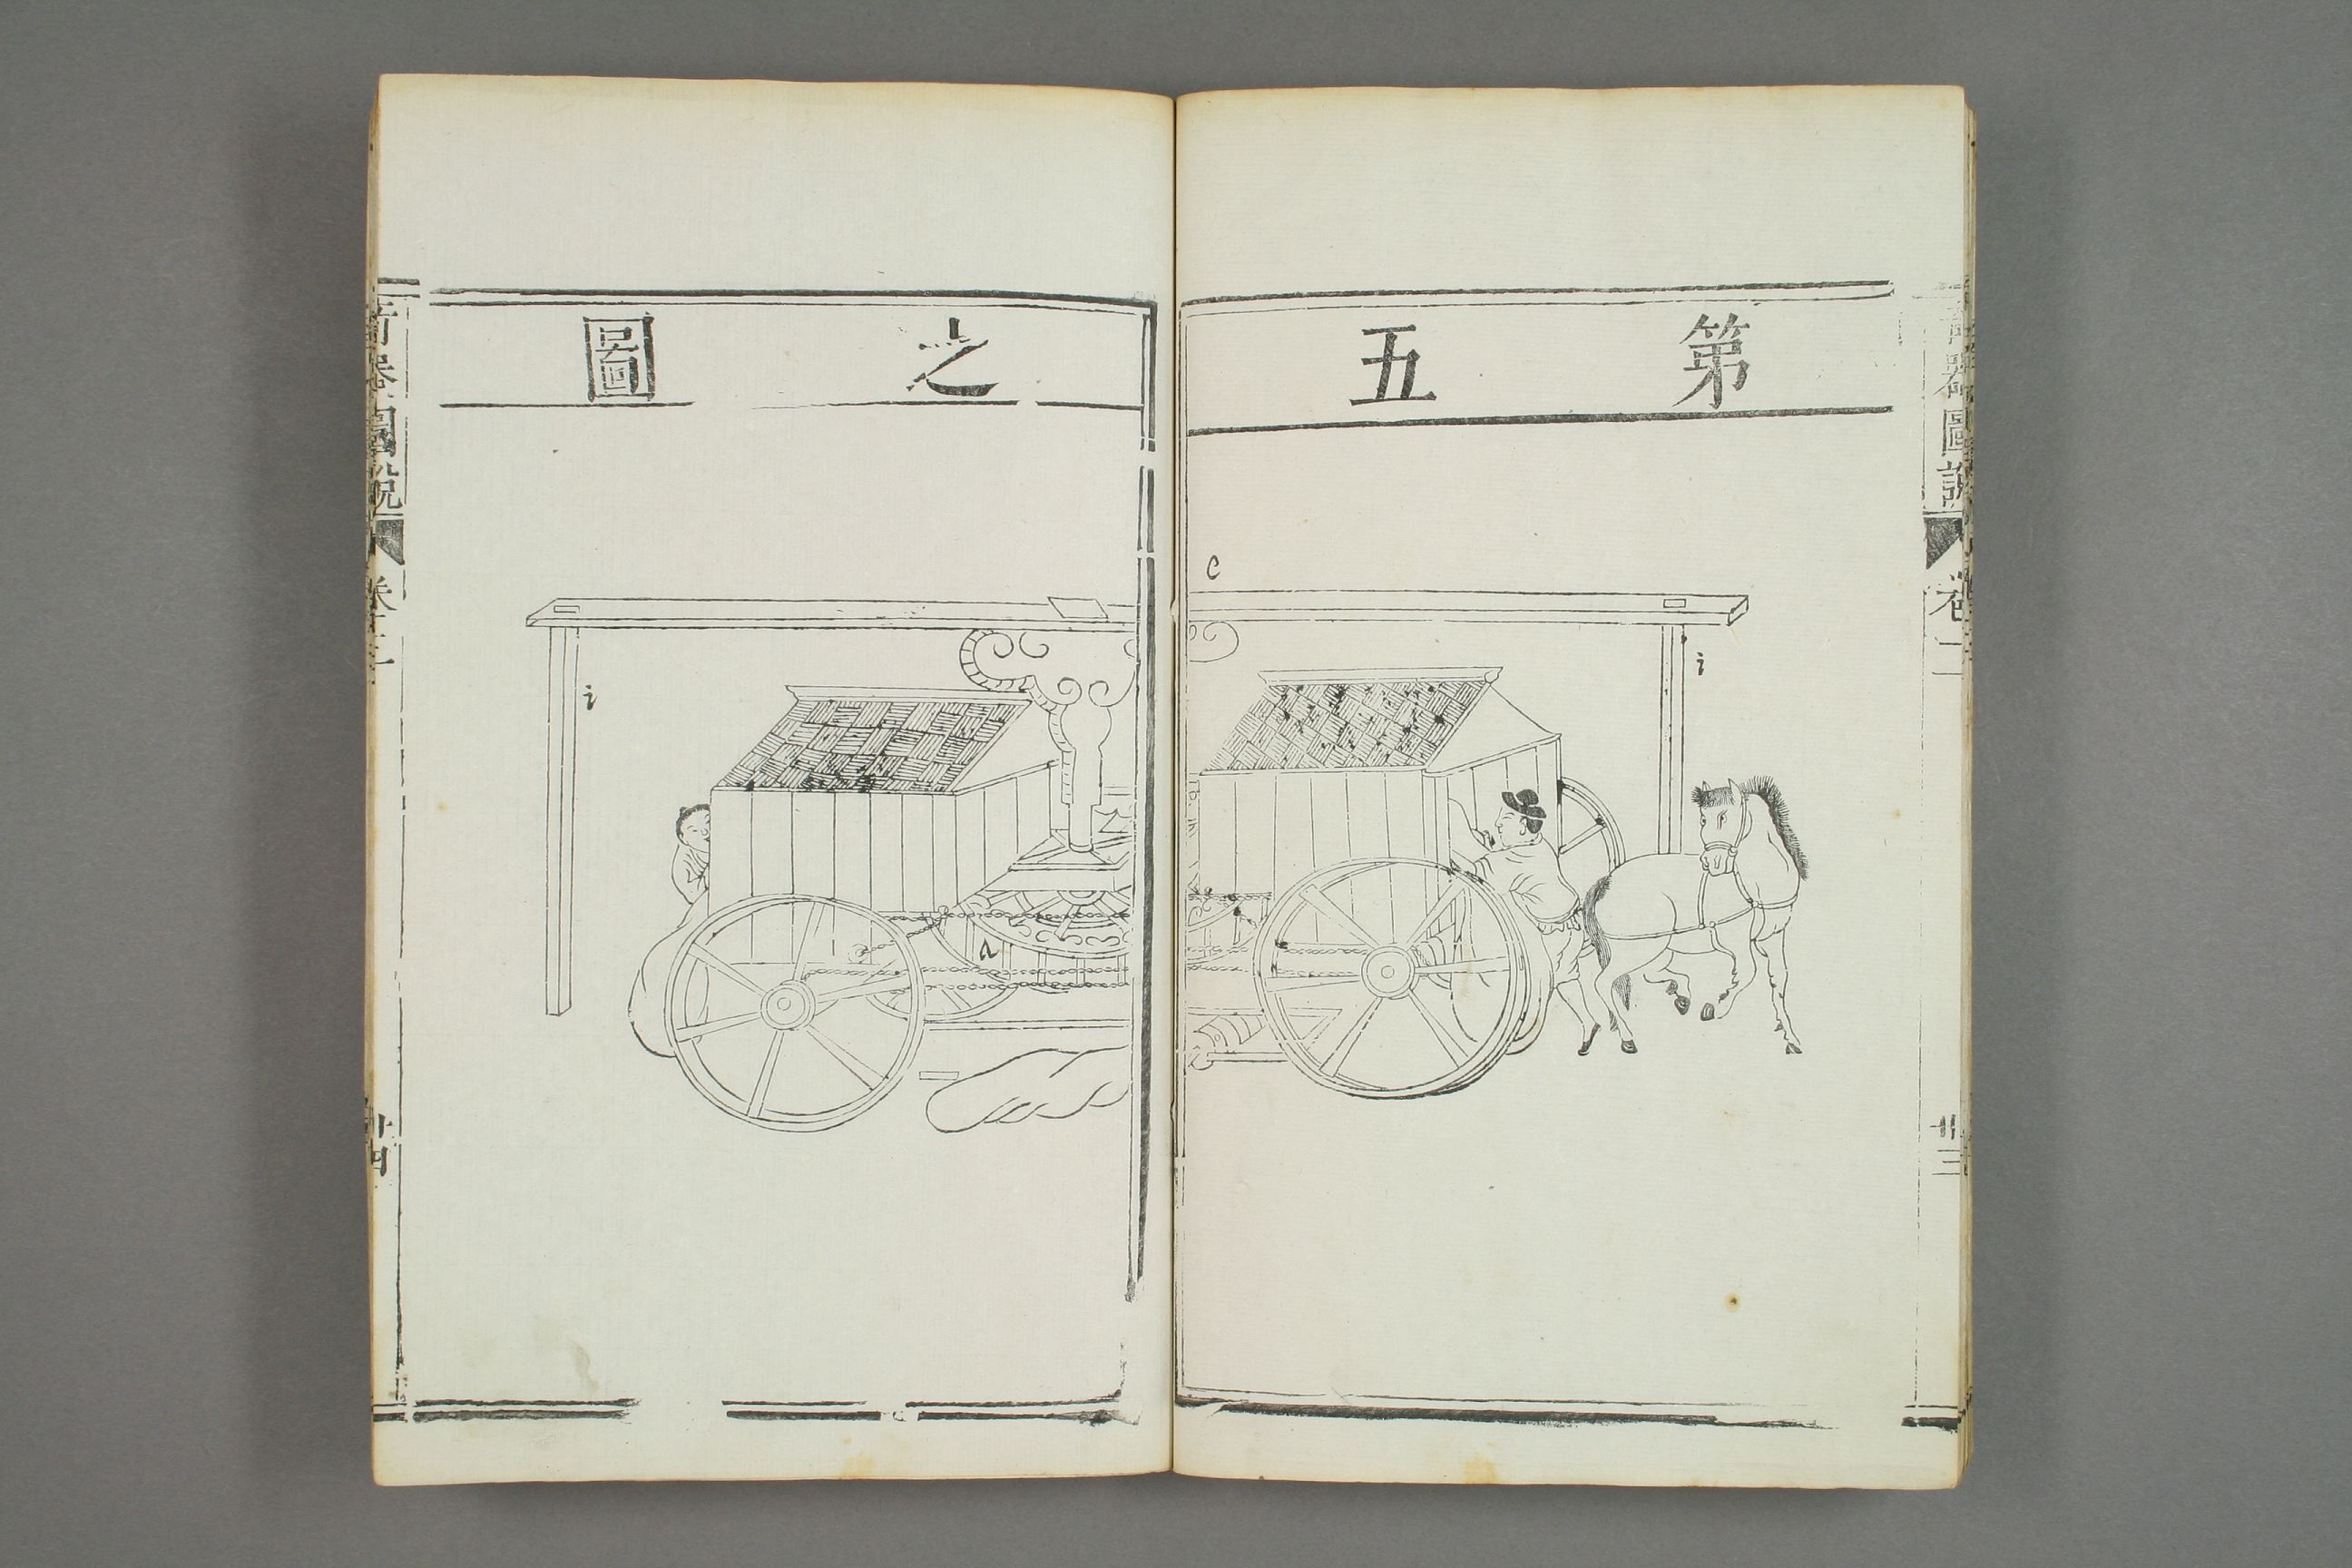 第五之圖
c
i
i
a
奇器圖說
卷三
廿四
奇器圖說
卷
三